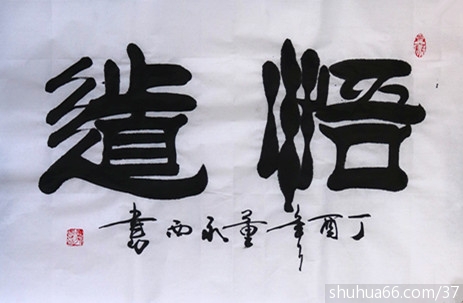 悟道
丁酉年董永西書
shuhua66.com/37